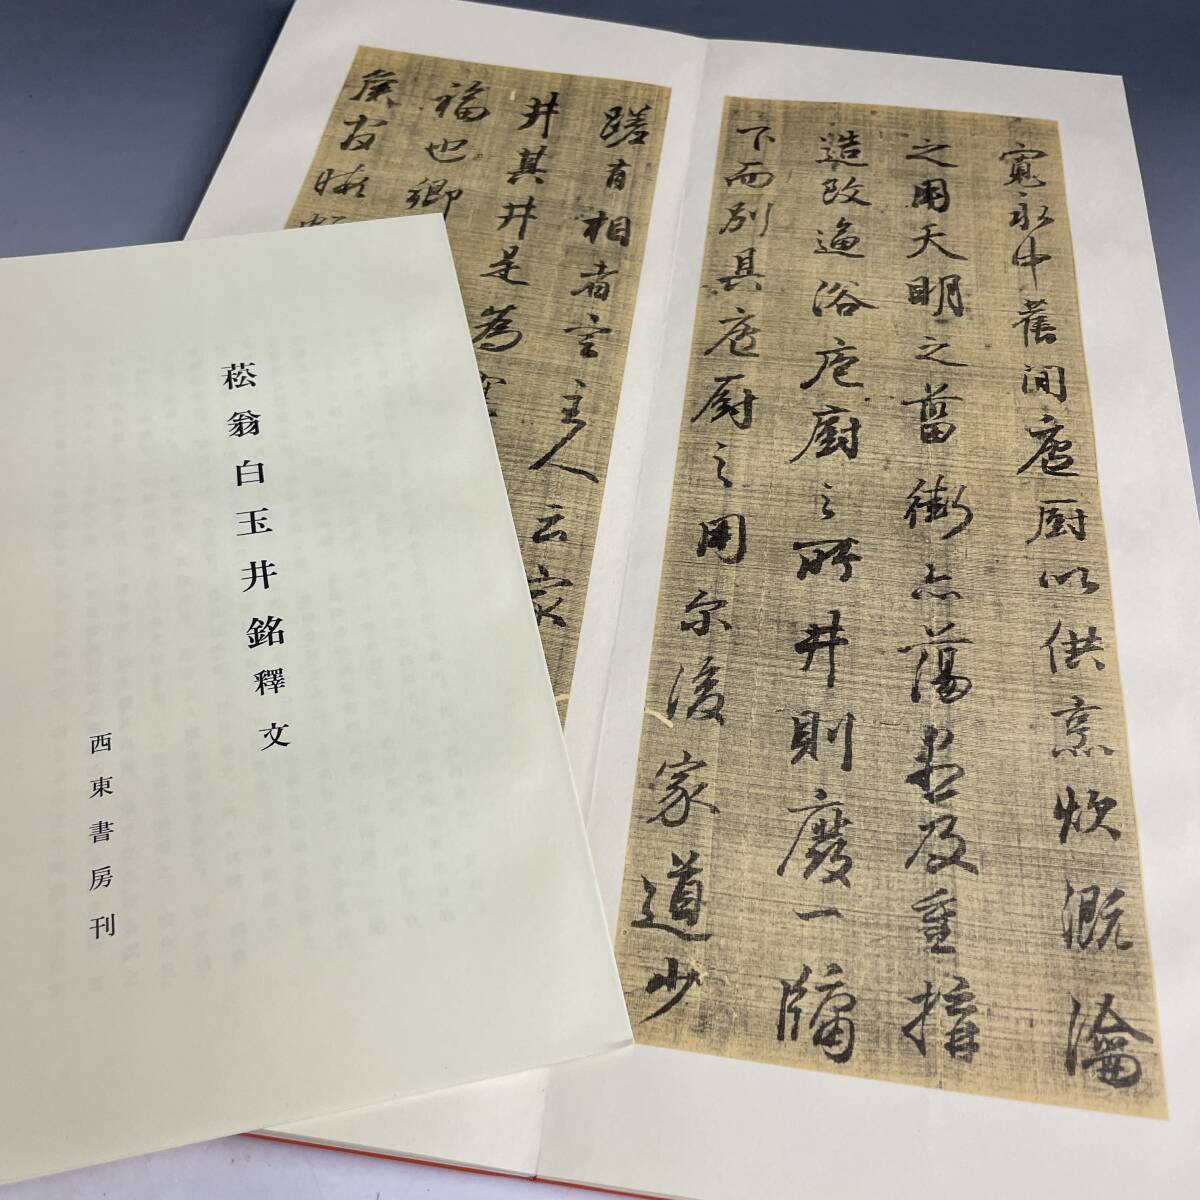 寛永中舊開庖厨以供烹炊漑瀹
之用天明之菑衡亦蕩尽及重搆
造改逾浴庖廚之所井則廢一牖
下而別具庖厨之用尓後家道少
蹉有相者言主人云家
井其井是為
福也卿
菘翁白玉井銘釋文
西東書房刊